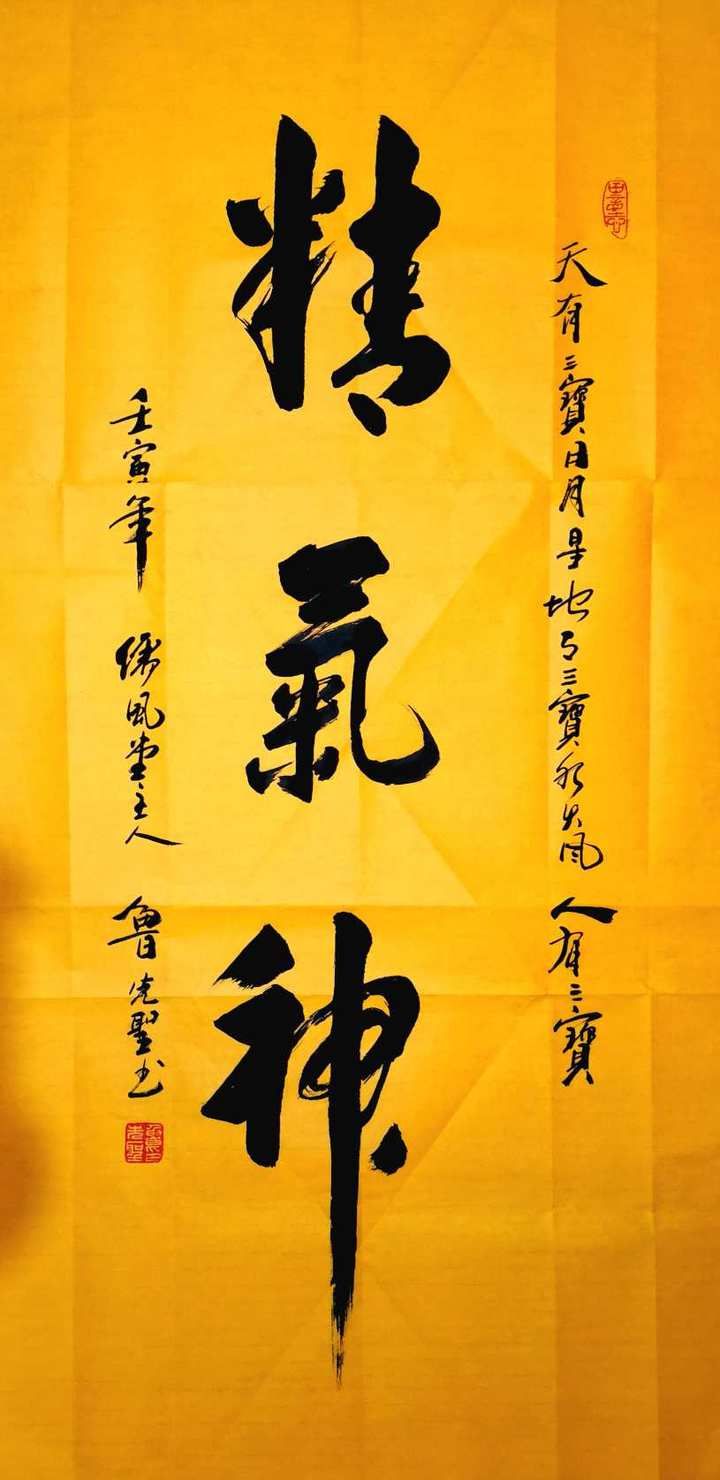 天有三寶日月星地有三寶水火風 人有三寶
精氣神
壬寅年 儒風堂主人 魯先聖書